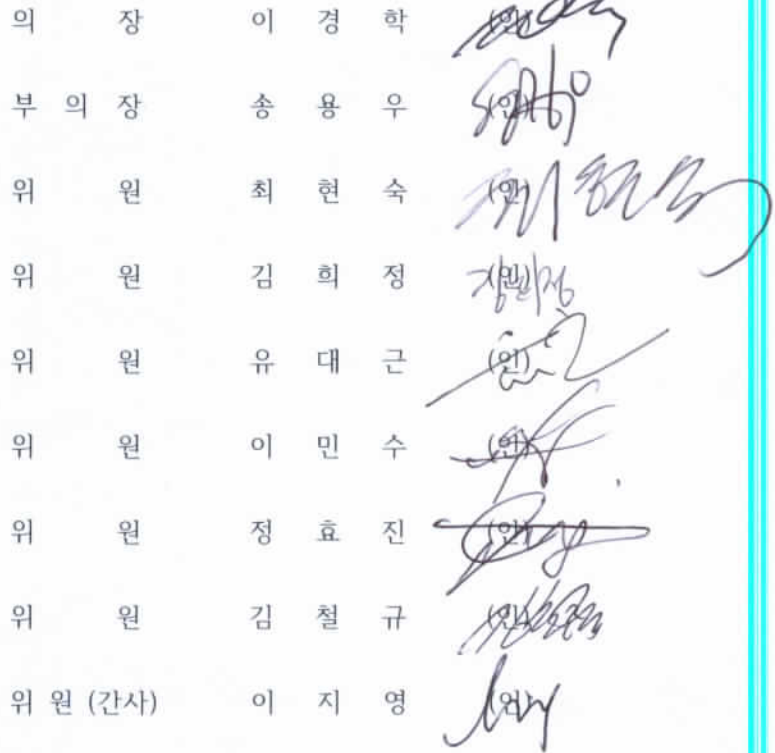 의 장 이 경 학 (인)
부 의 장 송 용 우 (인)
위 원 최 현 숙 (인)
위 원 김 희 정 (인)
위 원 유 대 근 (인)
위 원 이 민 수 (인)
위 원 정 효 진 (인)
위 원 김 철 규 (인)
위 원 (간사) 이 지 영 (인)